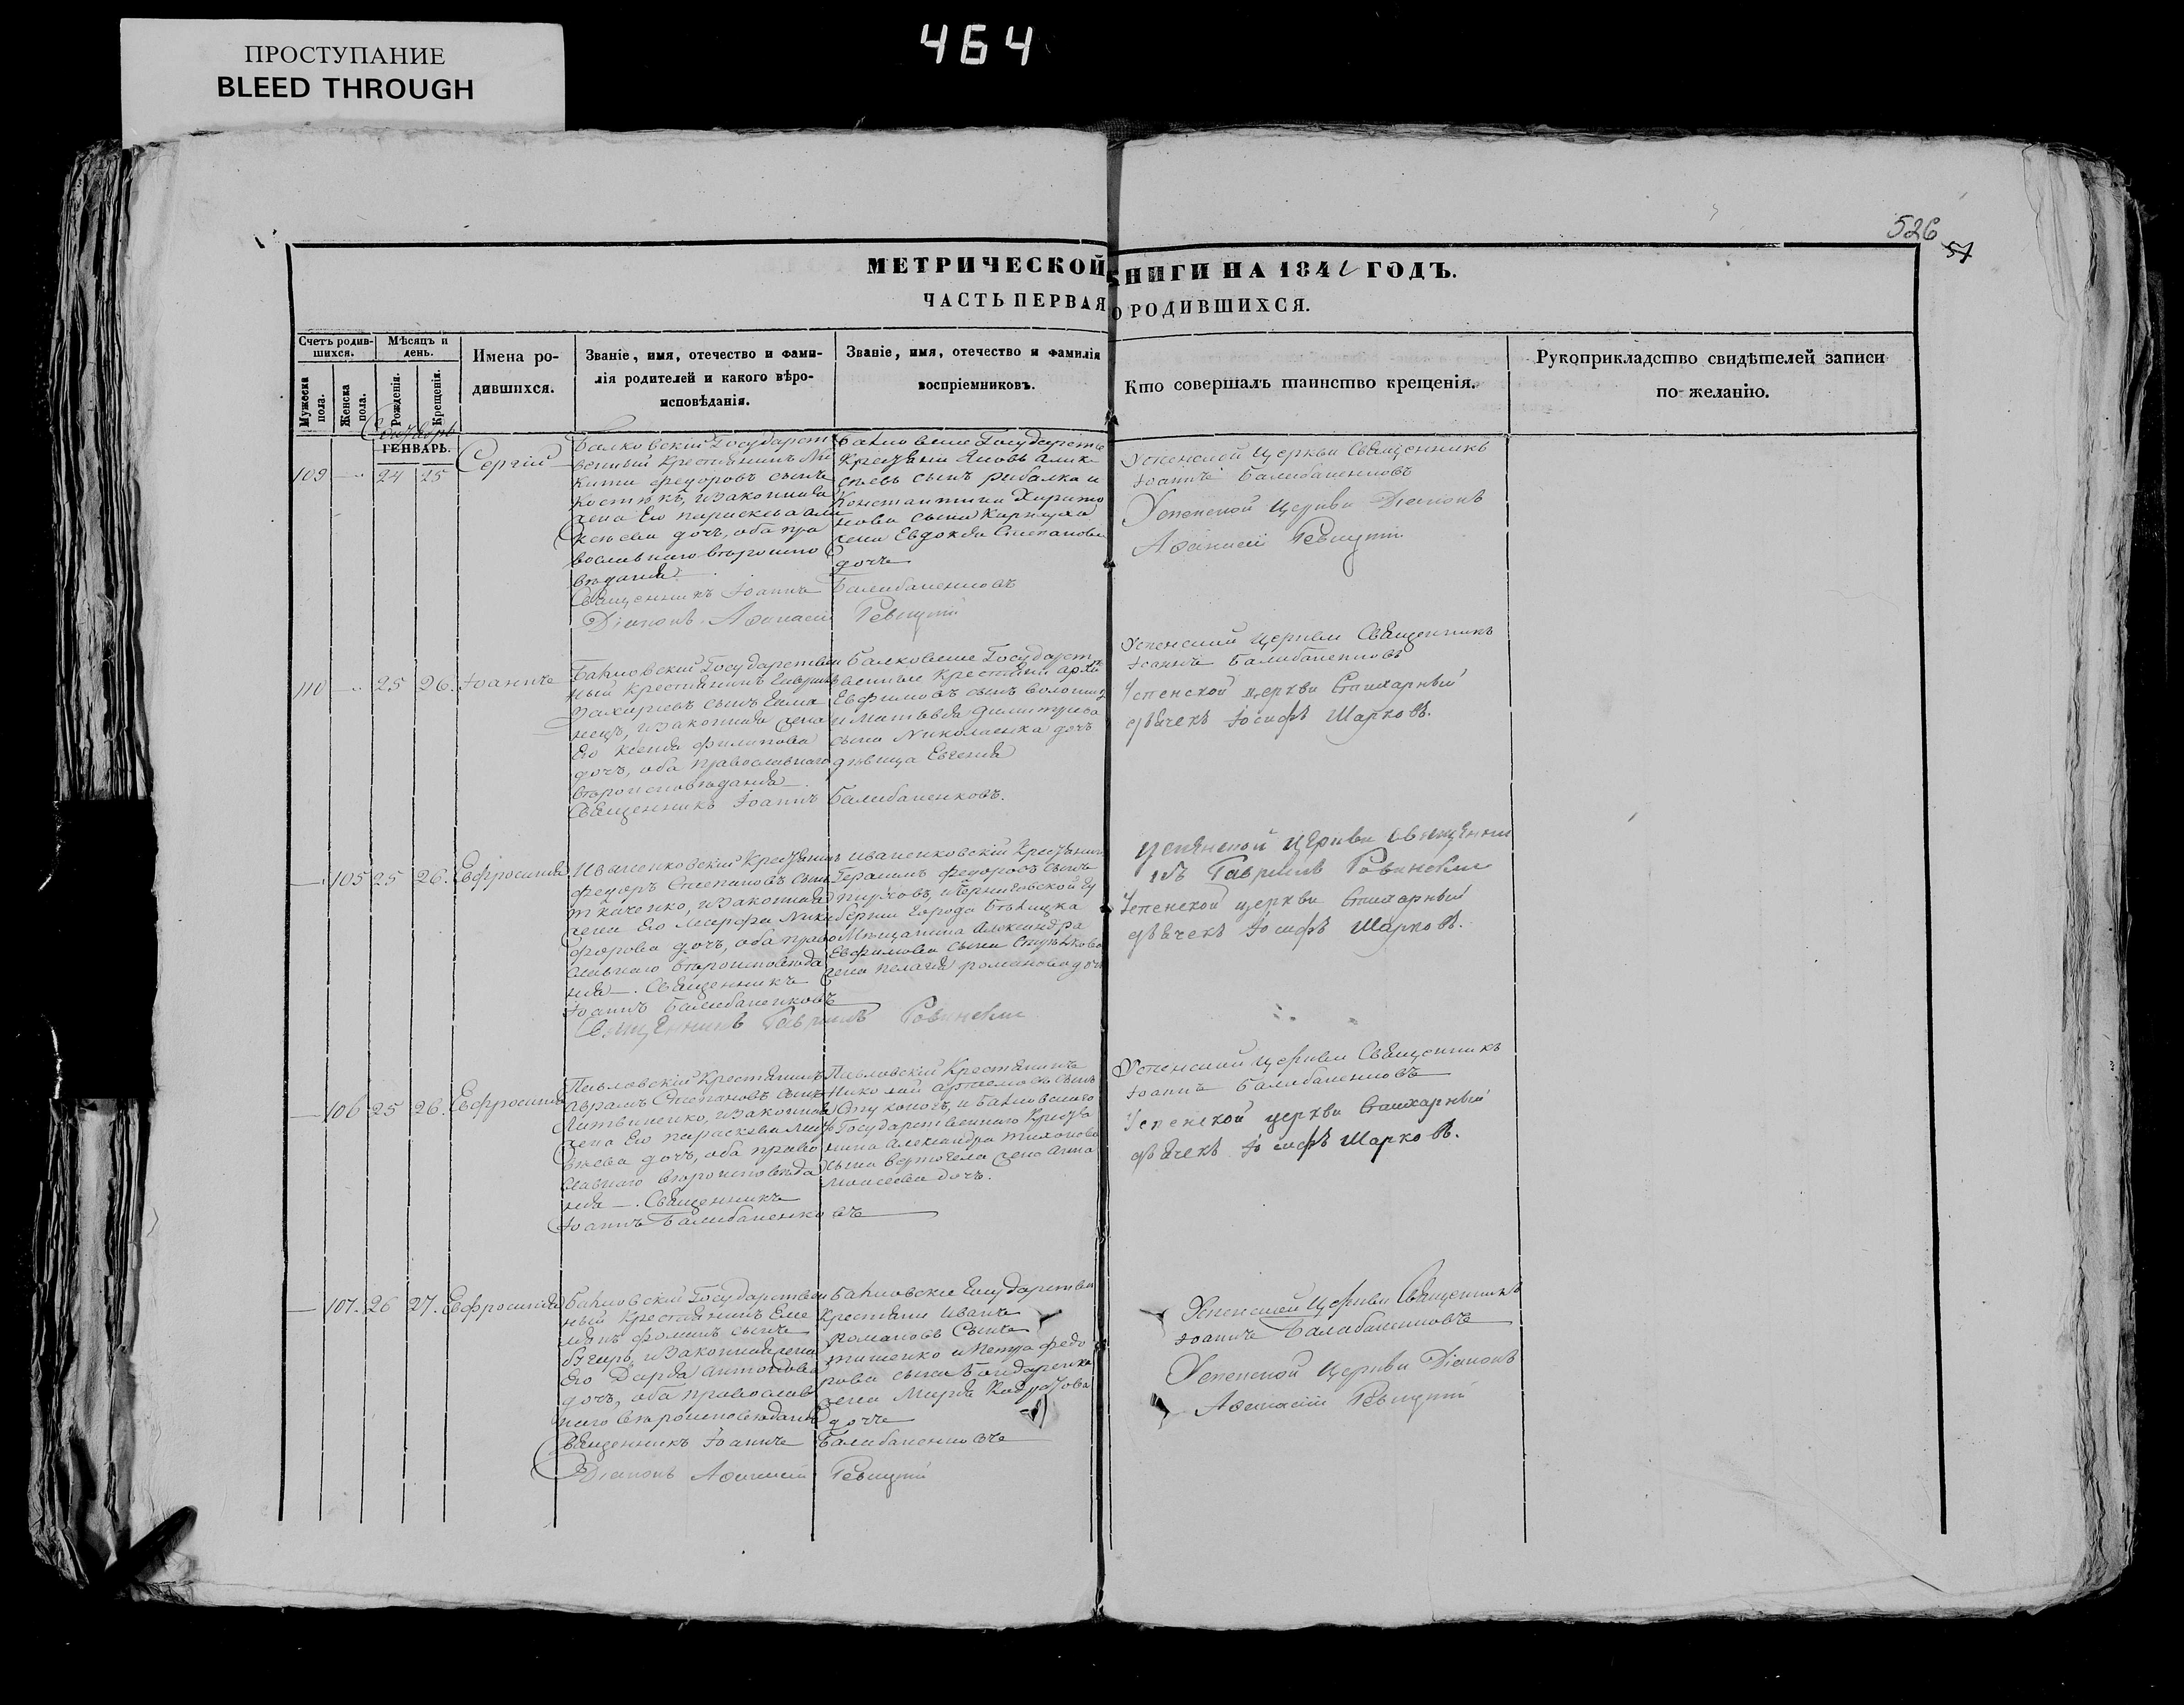 464
ПРОСТУПАНИЕ
BLEED THROUGH
526
57
МЕТРИЧЕСКОЙ КНИГИ НА 1842 ГОДЪ.
ЧАСТЬ ПЕРВАЯ О РОДИВШИХСЯ.
Счетъ родив-
шихся.
Мужеска пола.
Женска пола.
Мѣсяцъ и
день.
Рожденія.
Крещенія.
Имена ро-
дившихся.
Званіе, имя, отечество и фами-
лія родителей и какого вѣро-
исповѣданія.
Званіе, имя, отечество и фамилія
воспріемниковъ.
Кто совершалъ таинство крещенія.
Рукоприкладство свидѣтелей записи
по желанію.
Сентябрь
ГЕНВАРЬ.
109 — 24 25
Сергій
Балковскій Государст
венный Крестьянинъ Ни
кита Федоровъ сынъ
Костюкъ, и законная
жена Его Параскева Але
ксѣева дочь, оба пра
вославнаго вѣроиспо
вѣданія
Священникъ Іоаннъ Балабаненковъ
Діаконъ Афанасій Ревуцкій
Государств
Крестьяне Яковъ Алек
сѣевъ сынъ Рибалка и
Константина Харито
нова сына
жена Евдокія Степанова
дочь
Успенской Церкви Священникъ
Іоаннъ Балабаненковъ
Успенской Церкви Діаконъ
Афанасій Ревуцкій
110 — 25 26. Іоаннъ
Государствен
ный Крестьянинъ
Захаріевъ сынъ
нецъ, и законная жена
Его Ксенія Филипова
дочь, оба православнаго
вѣроисповѣданія —
Священникъ Іоаннъ Балабаненковъ.
Балковские Государст
венные Крестьяни
Евфимовъ сынъ
и Матвѣя Димитріева
сына Николаенка дочь
дѣвица Евгенія
Успенской Церкви Священникъ
Іоаннъ Балабаненковъ
Успенской церкви Стихарный
дьячекъ Іосифъ Шарковъ.
— 105 25 26. Евфросинія
Иваненковскій Крестьянинъ
Федоръ Степановъ сынъ
Ткаченко, и законная
жена Его Марфа Ники
форова дочь, оба право
славнаго вѣроисповѣда
нія —. Священникъ
Іоаннъ Балабаненковъ
Священникъ Гавріилъ Ровинскій
Иваненковскій Крестьянинъ
Герасимъ Федоровъ сынъ
и Черниговской Гу
берніи Города
Мѣщанина Александра
Евфимова сына
жена Пелагія Романова дочь
Успенской Церкви Священни
къ Гавріилъ Ровинскій
Успенской церкви Стихарный
дьячекъ Іосифъ Шарковъ.
— 106 25 26. Евфросинія
Павловскій Крестьянинъ
Аврамъ Степановъ сынъ
Литвиненко, и законная
жена Его Параскева
дочь, оба право
славнаго вѣроисповѣда
нія —. Священникъ
Іоаннъ Балабаненковъ
Павловскій Крестьянинъ
Николай Артемовъ сынъ
и
Государственнаго Крестья
нина Александра Тихонова
сына жена Анна
Моисеева дочь.
Успенской Церкви Священникъ
Іоаннъ Балабаненковъ
Успенской церкви Стихарный
дьячекъ Іосифъ Шарковъ.
— 107. 26 27. Евфросинія
Государствен
ный Крестьянинъ Еме
льянъ Фоминъ сынъ
и законная жена
Его Дарья Антонова
дочь, оба православ
наго вѣроисповѣданія
Священникъ Іоаннъ Балабаненковъ
Діаконъ Афанасій Ревуцкій
Государствен
Крестьяни Иванъ
Романовъ Сынъ
Тищенко и Петра Федо
рова сына Бондаренка
жена Марія
дочь
Успенской Церкви Священникъ
Іоаннъ Балабаненковъ
Успенской Церкви Діаконъ
Афанасій Ревуцкій